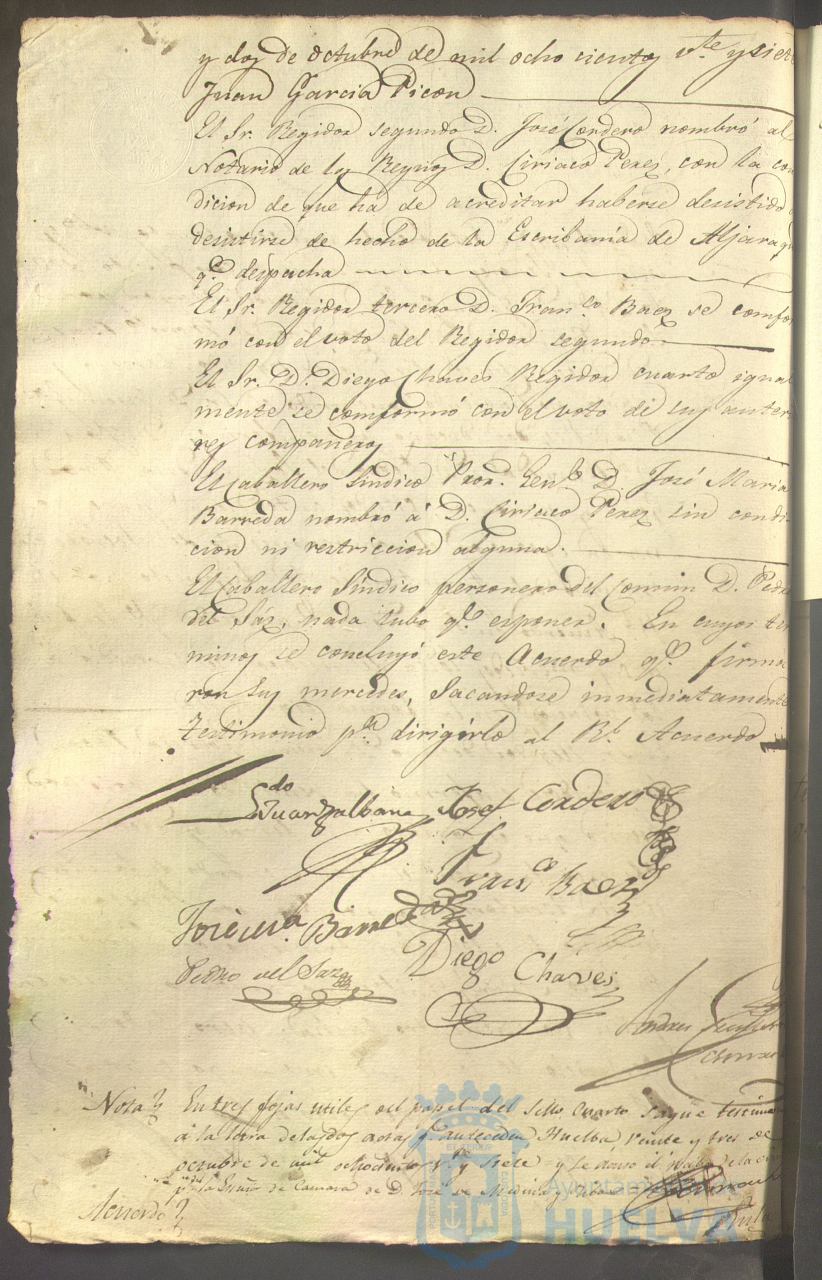 y dos de octubre de mil ocho cientos vte. y siete
Juan Garcia Picon
El Sr. Regidor segundo D. José Cordero nombró al
Notario de los Reynos D. Ciriaco Perez, con la con
dicion de que ha de acreditar haberse desistido
desistirse de hecho de la Escribanía de Aljaraq
qe. despacha
El Sr. Regidor tercero D. Franco. Baez se comfor
mó con el voto del Regidor segundo
El Sr. D. Diego Chaves Regidor cuarto igual
mente se comformó con el voto de sus anterio
res compañeros
El Caballero Sindico Pror. Genl. D. José Maria
Barreda nombró á D. Ciriaco Perez sin condi-
cion ni restriccion alguna.
El Caballero Sindico personero del Comun D. Pedro
del Sáz, nada tubo qe. esponer. En cuyos ter
minos se concluyó este Acuerdo qe. firma
ron sus mercedes, Sacandose inmediatamente
testimonio pa. dirigirlo al Rl. Acuerdo
Josef Cordero
Franco. Baez
José Ma. Barreda
Diego Chaves
Pedro del Saz
Nota
En tres fojas utiles del papel del Sello Cuarto saqué testimo
á la letra de las dos actas qe. anteceden Huelba veinte y tres de
octubre de mil ochocientos vte. y siete
de Camara de D. José de
Acuerdo
Ayuntamiento de
HUELVA